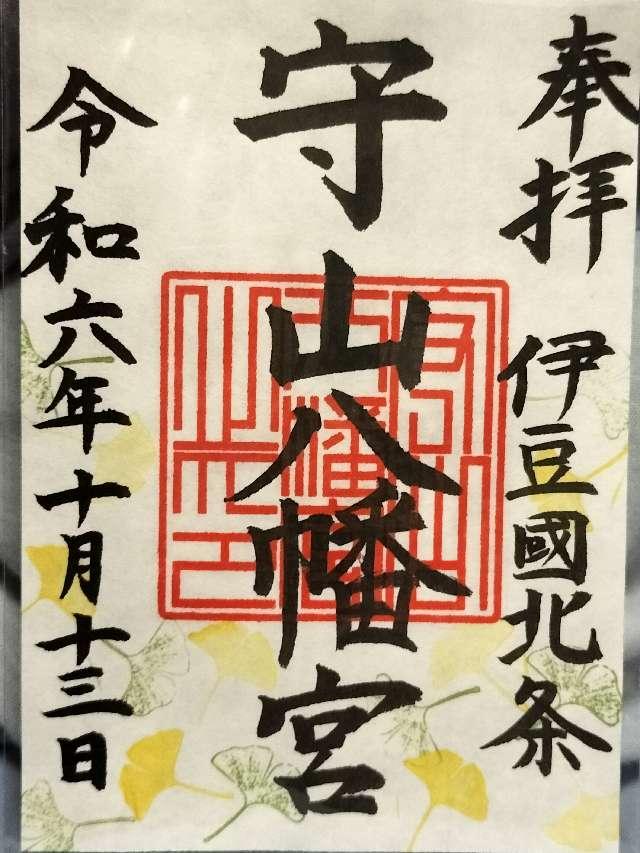 奉拝 伊豆國北条
守山八幡宮
令和六年十月十三日